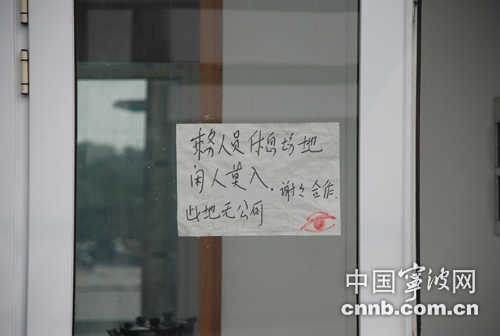 务人员休息场地
闲人莫入。谢谢合作.
此地无公司
中国宁波网
cnnb.com.cn